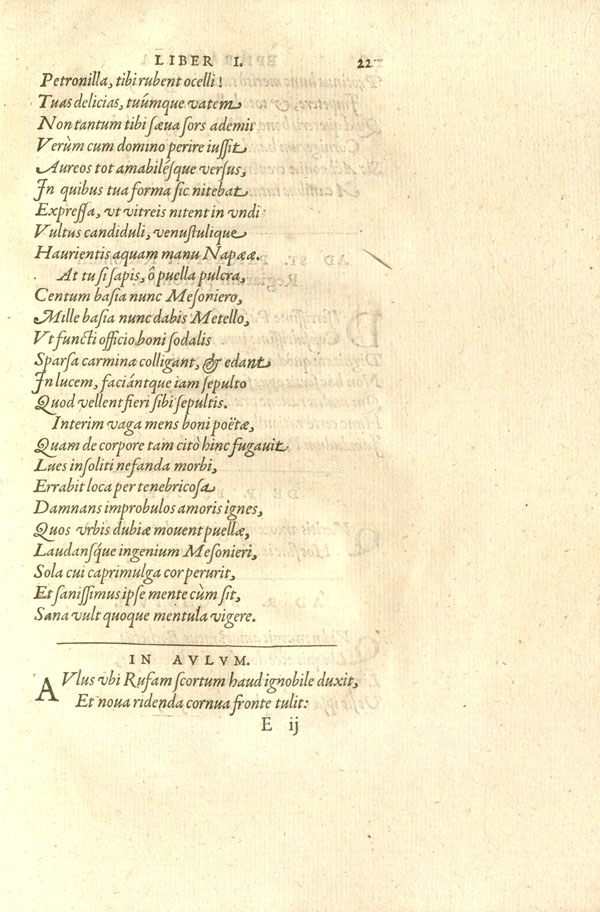 LIBER I. 22
Petronilla, tibi rubent ocelli!
Tuas delicias, tuúmque vatem
Non tantum tibi sæua sors ademit
Verùm cum domino perire iussit
Aureos tot amabilésque versus,
In quibus tua forma sic nitebat
Expressa, vt vitreis nitent in vndis
Vultus candiduli, venustulique
Haurientis aquam manu Napææ.
At tu si sapis, ô puella pulcra,
Centum basia nunc Mesoniero,
Mille basia nunc dabis Metello,
Vt functi officio boni sodalis
Sparsa carmina colligant, & edant
In lucem, faciántque iam sepulto
Quod vellent fieri sibi sepultis.
Interim vaga mens boni poëtæ,
Quam de corpore tam citò hinc fugauit
Lues insoliti nefanda morbi,
Errabit loca per tenebricosa
Damnans improbulos amoris ignes,
Quos vrbis dubiæ mouent puellæ,
Laudansq́ue ingenium Mesonieri,
Sola cui caprimulga cor perurit,
Et sanissimus ipse mente cùm sit,
Sana vult quoque mentula vigere.
IN AVLVM.
AVlus vbi Rufam scortum haud ignobile duxit,
Et noua ridenda cornua fronte tulit:
E ij